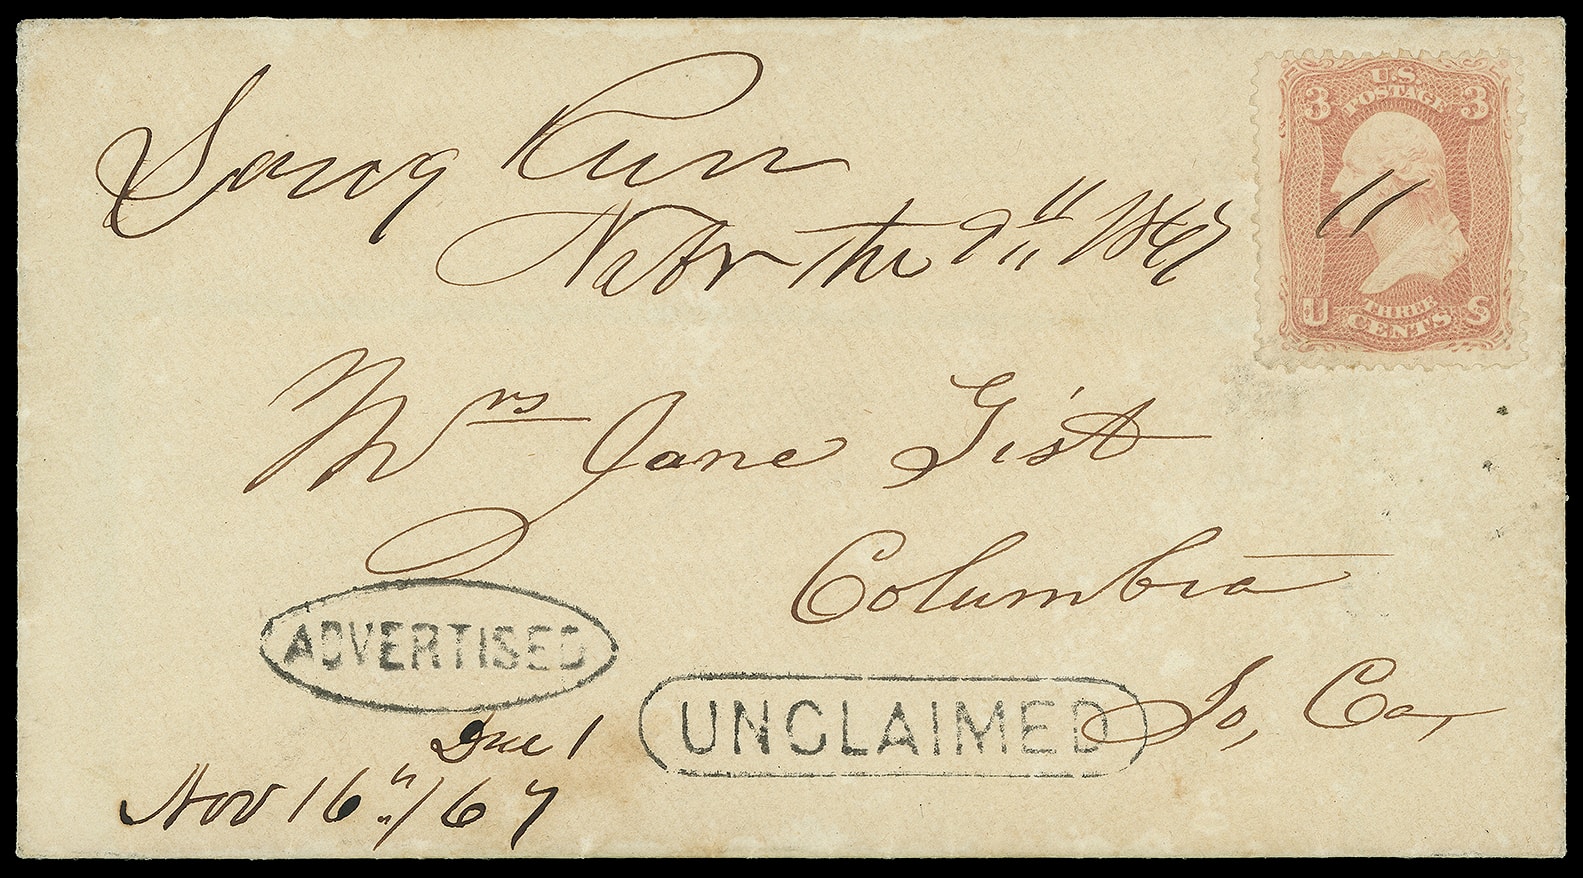 Sang Run
the 9" 1867
U.S.
POSTAGE
3 3
THREE
CENTS
U S
Mrs Jane Gist
Columbia
So, Ca,
ADVERTISED
UNCLAIMED
Due 1
Nov 16"/67